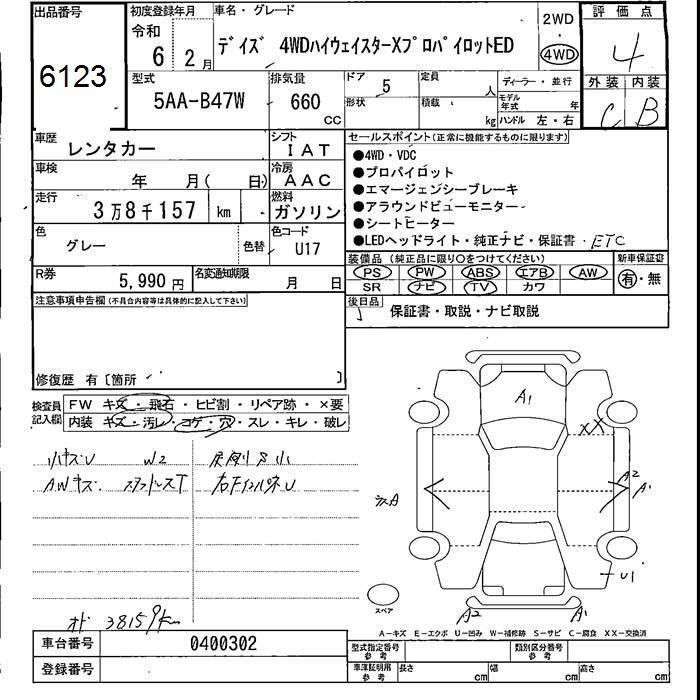 出品番号
6123
初度登録年月
令和
6 2月
車名・グレード
デイズ 4WDハイウェイスターXプロパイロットED
2WD
・
4WD
評価点
4
外装 内装
C B
型式
5AA-B47W
排気量
660
cc
ドア
5
形状
定員
人
積載
kg
ディーラー・並行
モデル年式 年
ハンドル 左・右
車歴
レンタカー
シフト
IAT
車検
年 月( 日)
冷房
AAC
走行
3万8千157 km
燃料
ガソリン
色
グレー
色替
色コード
U17
R券
5,990円
名変通知期限
月 日
セールスポイント(正常に機能するものに限ります)
●4WD・VDC
●プロパイロット
●エマージェンシーブレーキ
●アラウンドビューモニター
●シートヒーター
●LEDヘッドライト・純正ナビ・保証書・ETC
装備品(純正品に限り○をつけてください)
PS PW ABS エアB AW
SR ナビ TV カワ
新車保証書
有・無
後日品
保証書・取説・ナビ取説
注意事項申告欄(不具合内容等は具体的に記入して下さい)
修復歴 有〔箇所 〕
検査員
記入欄
FW キズ・飛石・ヒビ割・リペア跡・×要
内装 キズ・汚レ・コゲ・穴・スレ・キレ・破レ
小キズU W2
AWキズ. スタッドレスT
右下インパネU
オド 38159km
A1
XX
A2
A1
A
U1
A2
A1
スペア
A-キズ E-エクボ U-凹み W-補修跡 S-サビ C-腐食 XX-交換済
車台番号
0400302
登録番号
型式指定番号
参考
類別区分番号
参考
車庫証明用
参考
長さ cm
幅 cm
高さ cm